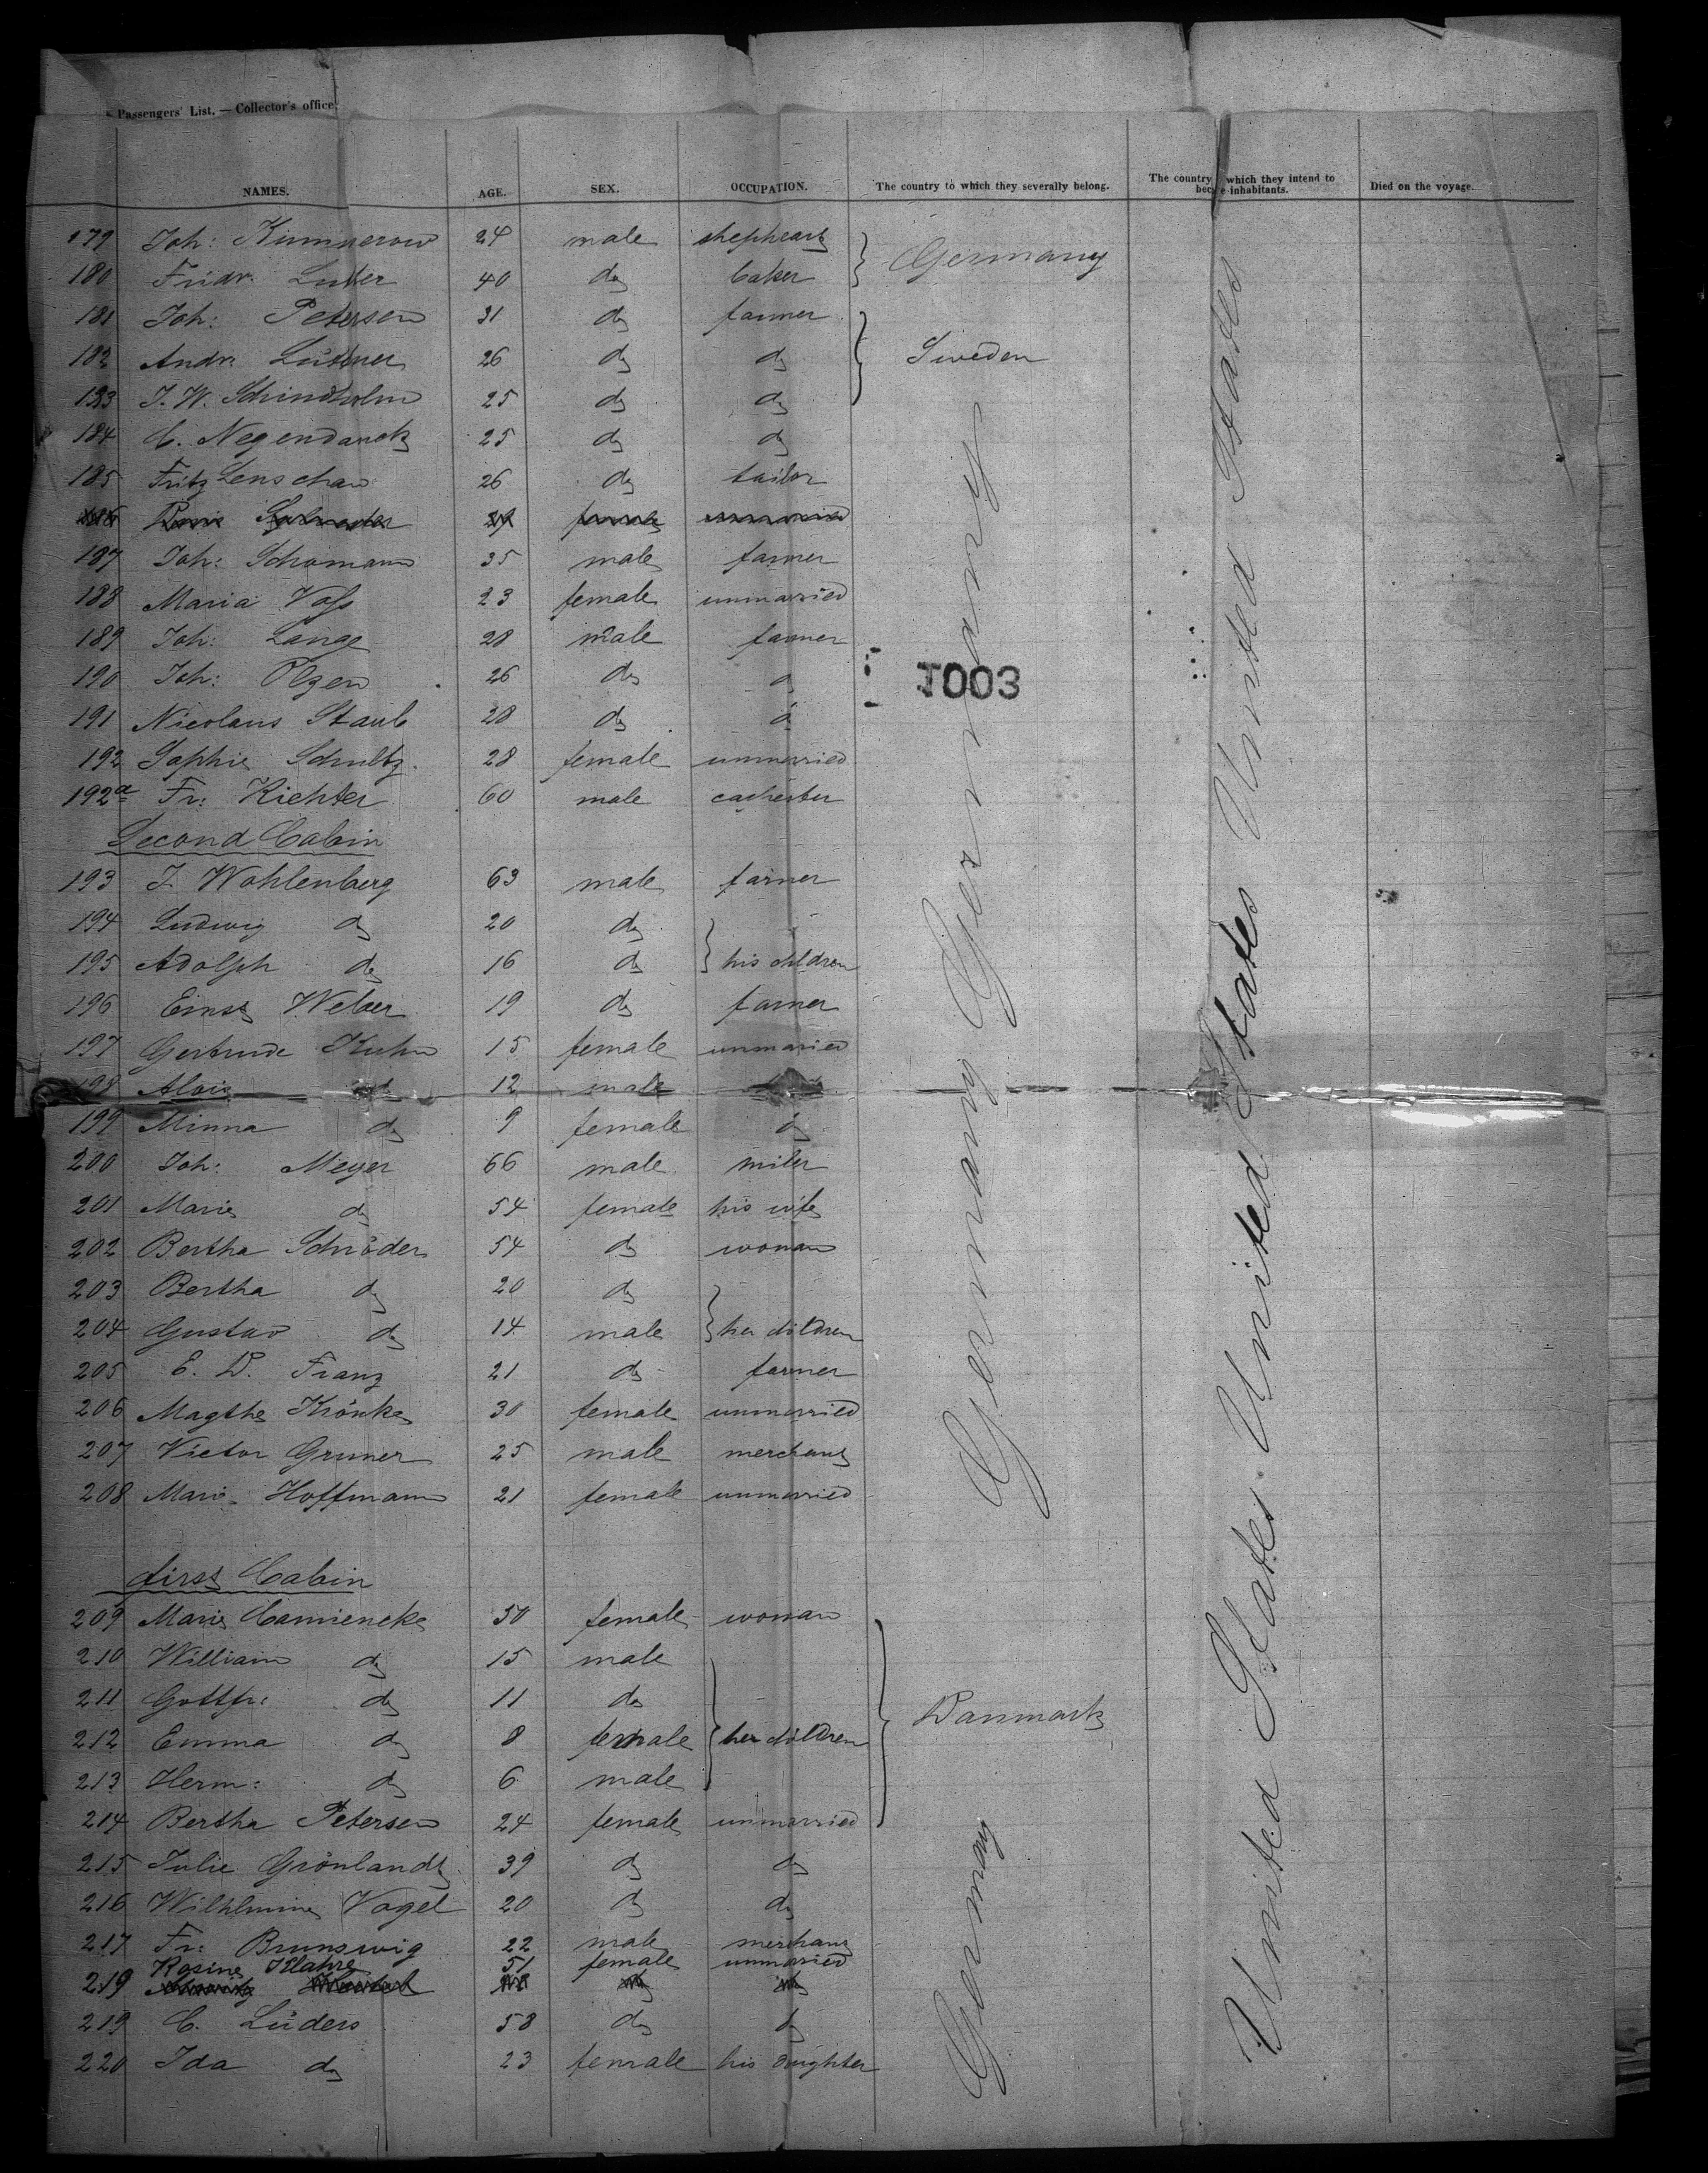 Passengers' List. — Collector's office.
NAMES. AGE. SEX. OCCUPATION. The country to which they severally belong. The country which they intend to bec e inhabitants. Died on the voyage.
179 Joh: Kummerow 24 male Germany
180 Fridr. 40 do baker
181 Joh: Petersen 31 do farmer
182 Andr. 26 do do Sweden
183 J. W. 25 do do
184 C. Negendanck 25 do do
185 Fritz Lenschau 26 do tailor
187 Joh: Schomann 35 male farmer
188 Maria Voss 23 female unmarried
189 Joh: Lange 28 male farmer
190 Joh: Olzen 26 do do
191 Nicolaus Staub 28 do do
192 Sophie Schultz 28 female unmarried
192a Fr: Richter 60 male
1003
Second Cabin
193 J. Wohlenberg 63 male farmer
194 Ludwig do 20 do
195 Adolph do 16 do his children
196 Ernst Weber 19 do farmer
197 Gertrude Kuhn 15 female unmaried
198 Alois do 12 male
199 Minna do 9 female do
200 Joh: Meyer 66 male miler
201 Marie do 54 female his wife
202 Bertha Schröder 54 do woman
203 Bertha do 20 do
204 Gustav do 14 male her children
205 E. D. Franz 21 do farmer
206 Magthe Krönke 30 female unmarried
207 Victor Gruner 25 male merchant
208 Marie Hoffmann 21 female unmarried
Germany Germany
United States United States
first Cabin
209 Marie Camiencke 50 female woman
210 William do 15 male
211 Gottfr: do 11 do
212 Emma do 8 female her children Danmark
213 Herm: do 6 male
214 Bertha Petersen 24 female unmarried
215 Julie Grönlandt 39 do do
216 Wilhlmine Vogel 20 do do
217 Fr: Brunswig 22 male merchant
Rosine Klahre 51 female unmaried
219
219 C. Lüders 58 do do
220 Ida do 23 female his daughter
Germany
United States